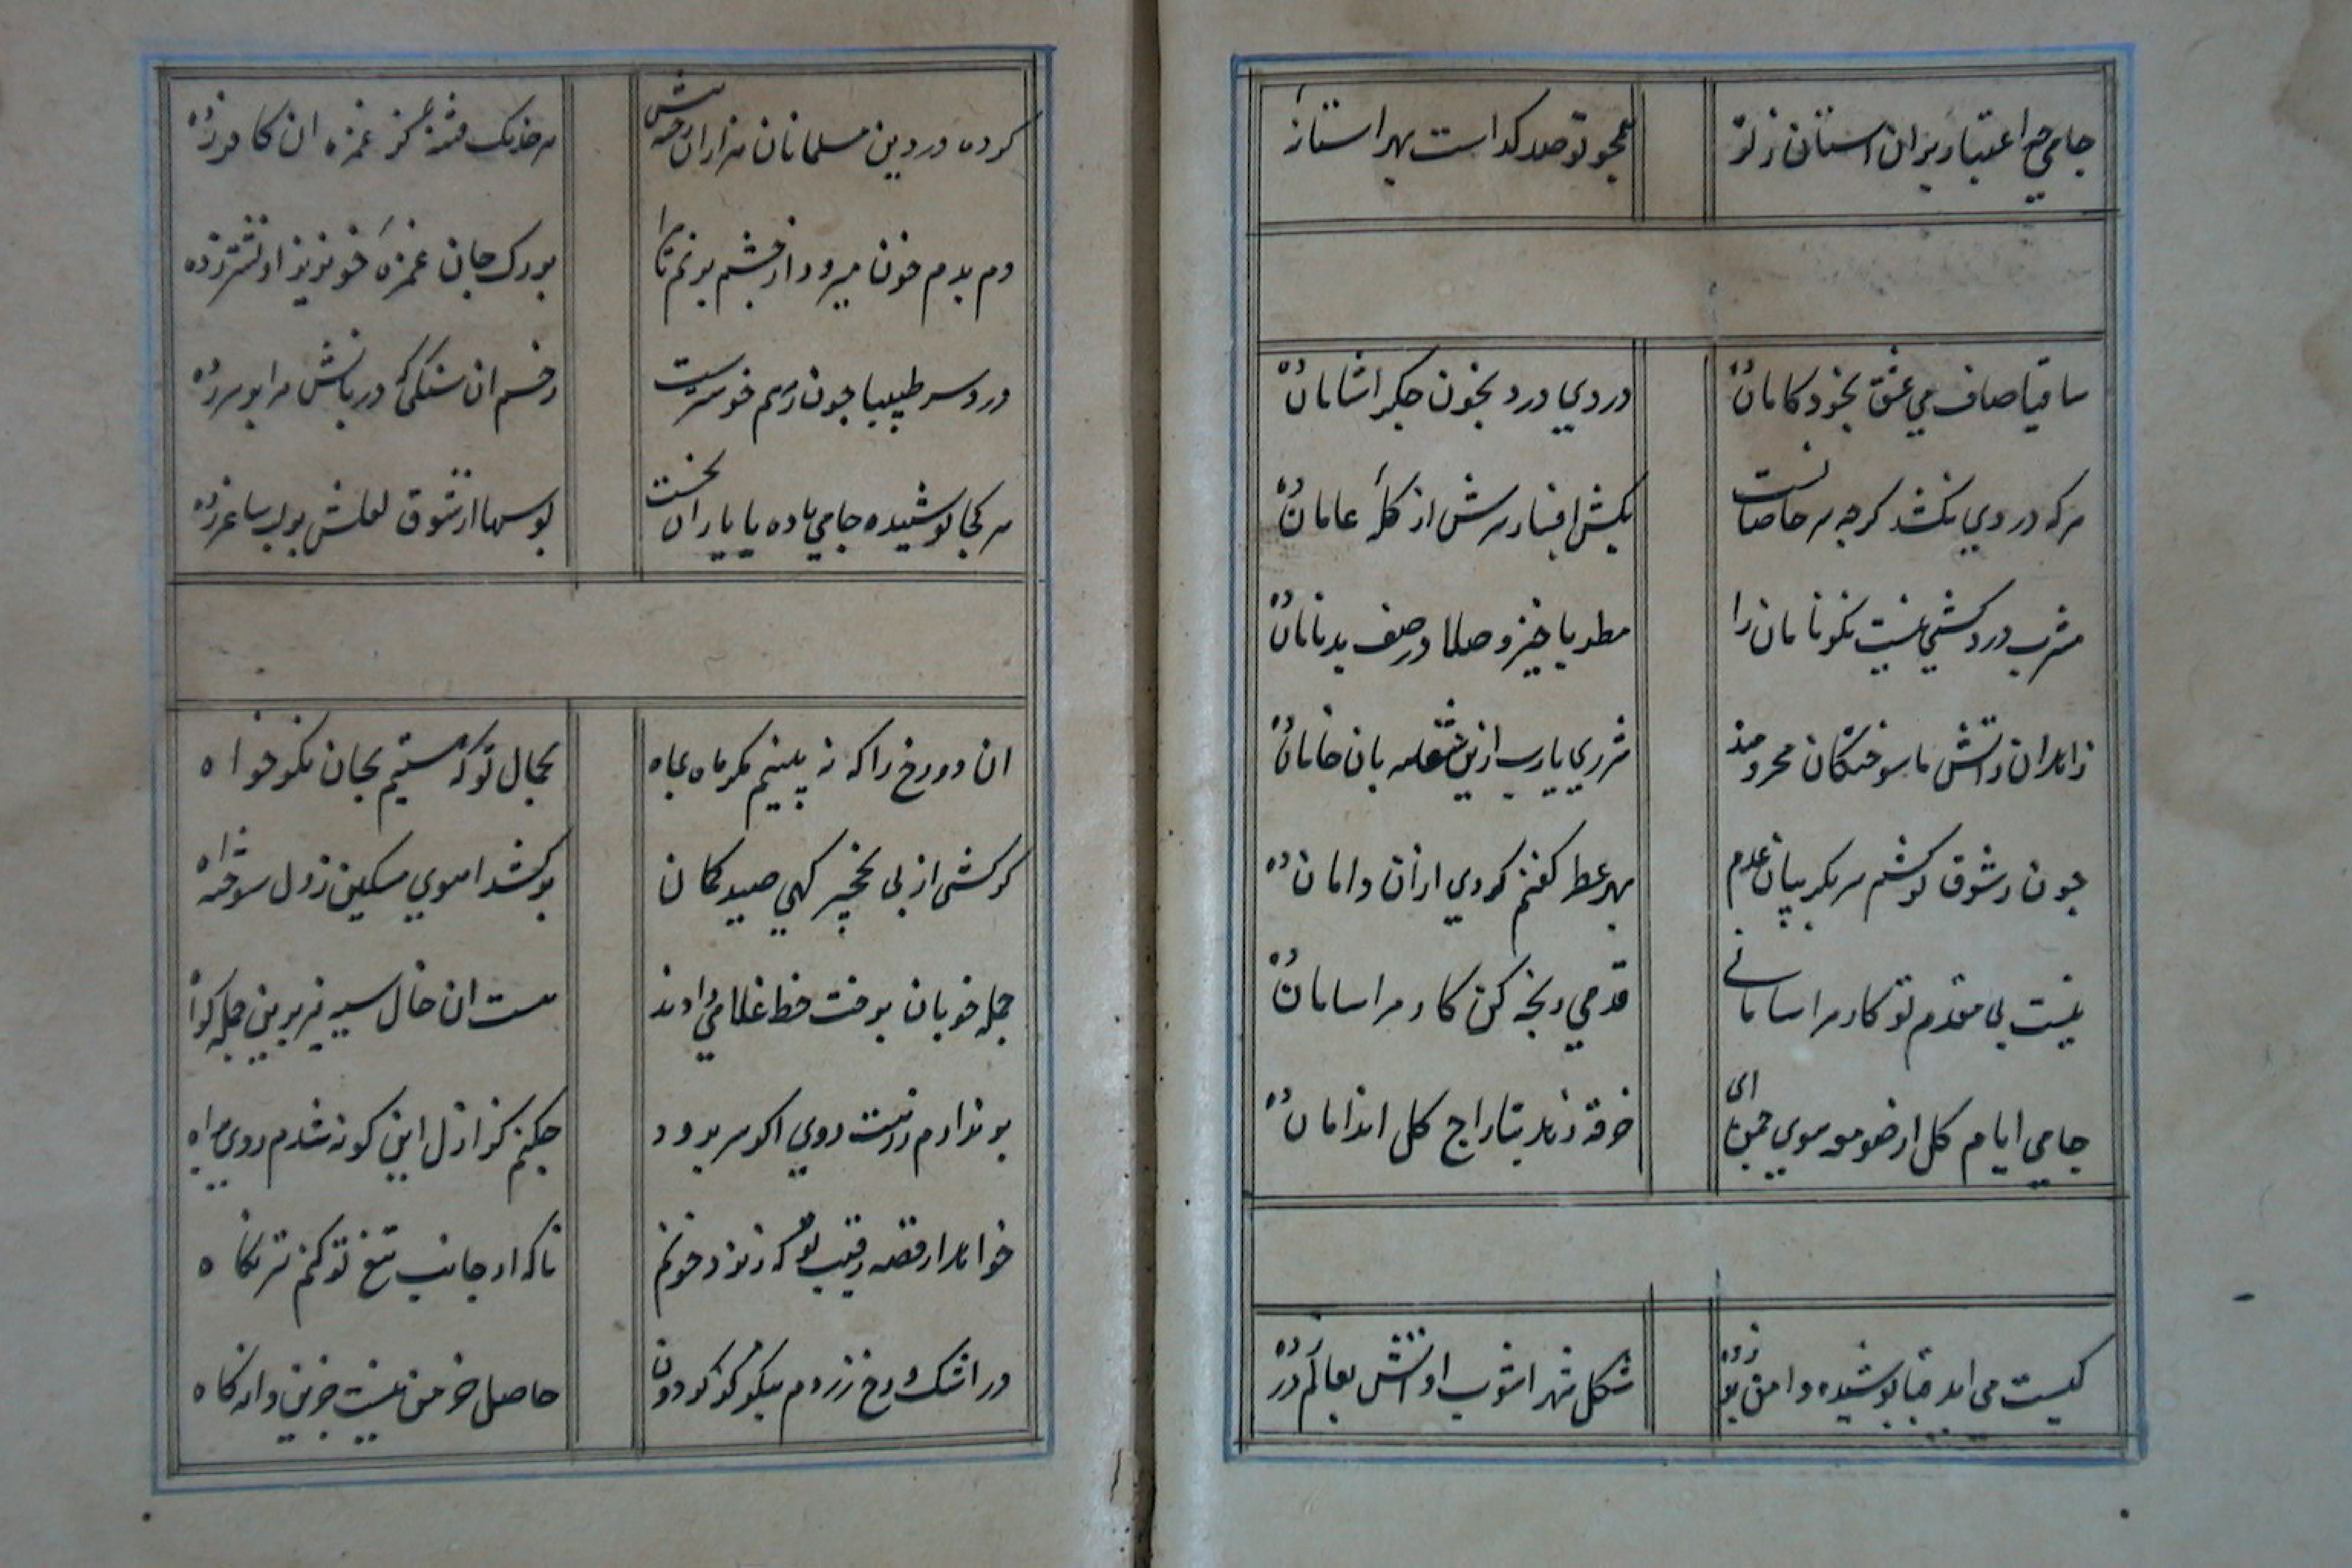 جامي چه اعتبار بران استان ز تو
همچو تو صد كداست بهر استانه
ساقيا صاف مي عشق بخود كامان ده
دردي درد بخون جكر اشامان ده
هر كه دردي نكشد كرچه ز خاصانست
بكش افسار سرش از كلهٔ عامان ده
مشرب درد كشي نيست نكونامان را
مطربا خيز و صلا در صف بدنامان ده
زاهدان ز اتش ما سوختكان محرومند
شرري يارب ازين شعله بان خامان ده
چون ز شوق تو كشم سر بكريبان عدم
بهر عطر كفنم كردي ازان دامان ده
نيست بي مقدم تو كار مرا سامانے
قدمي رنجه كن كار مرا سامان ده
جامي ايام كل از صومعه سوي چمن اي
خرقه زهد بتاراج كل اندامان ده
كيست مي ايد قبا پوشيده دامن بر زده
شكل شهر اشوب او اتش بعالم در زده
كرده در دين مسلمانان هزاران رخنه بيش
هر خدنك فتنه كز غمزه ان كافر زده
دم بدم خون ميرود از چشم پر نم تا مرا
بر رك جان غمزهٔ خونريز او نشتر زده
درد سر طبيبا چون زهم خوشترست
زخم ان سنكي كه دربانش مرا بر سر زده
هر كجا نوشيده جامي باده با ياران نخست
بوسها از شوق لعلش بر لب ساغر زده
ان دو رخ را كه نه بينيم مكر ماه بماه
بجمال تو كه هستيم بجان نكوخواه
كر كشي از پي نخچير كهي صيد كمان
بر كشد اهوي مسكين ز دل سوخته اه
جمله خوبان برخت خط غلامي دادند
هست ان خال سيه نيز برين جمله كواه
بر ندارم ز درت روي اكر سر برود
چكنم كز ازل اين كونه شدم روي براه
خواهد از قصه رقيب تو كه ريزد خونم
تا كه از جانب تيغ تو كنم تيز نكاه
در اشك و رخ زردم بيكي جو كردون
حاصل خرمن نيست جزين دانه كاه